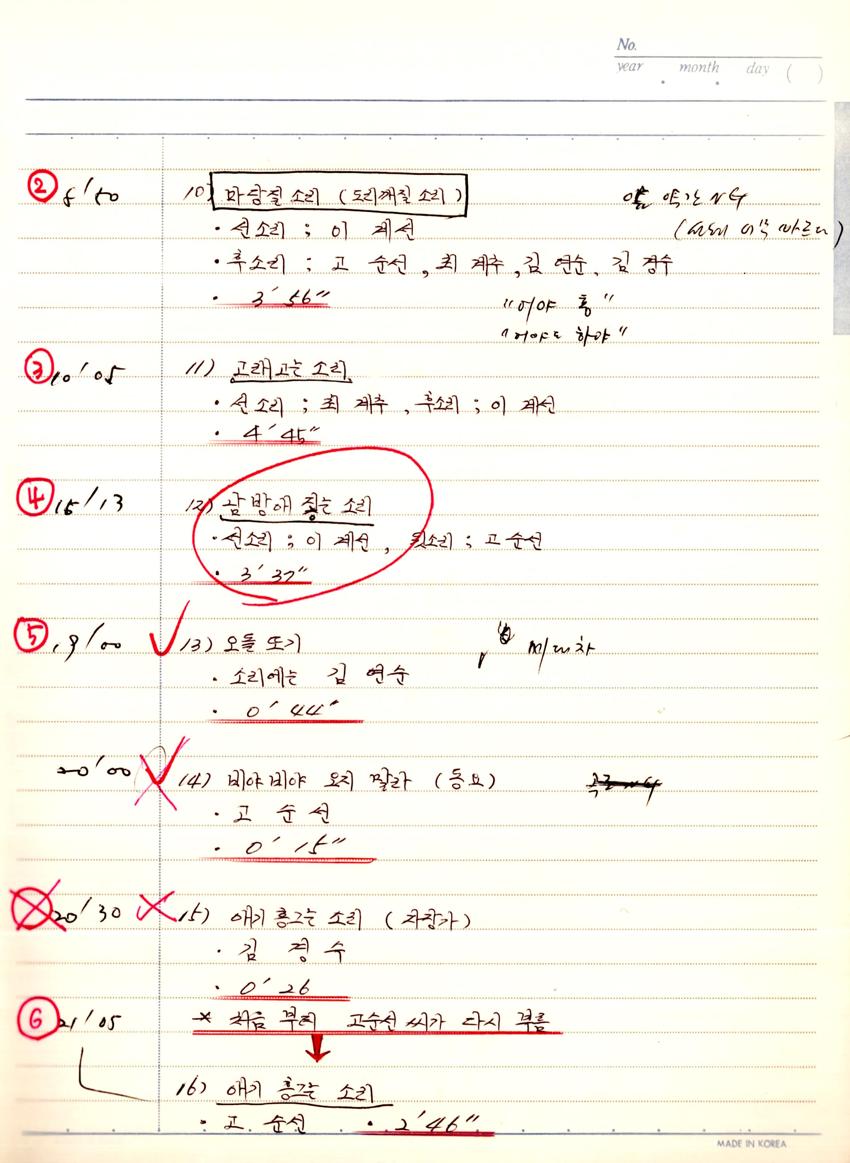 No.
year . month . day ( )
② 8'50 10) 마당질 소리 (도리깨질 소리) 약간 NG
· 선소리 ; 이 계선
· 후소리 ; 고 순선, 최 계추, 김 연순, 김 경수
· 3'56" "어야 홍"
"어야도 하야"
③ 10'05 11) 고래고는 소리
· 선소리 ; 최 계추, 후소리 ; 이 계선
· 4'45"
④ 15'13 12) 삼방애 짛는 소리
· 선소리 ; 이 계선, 훗소리 ; 고 순선
· 3'37"
⑤ 19'00 13) 오돌또기
· 소리에는 김 연순
· 0'44"
20'00 14) 비야비야 오지 말라 (동요)
· 고 순 선
· 0'15"
20'30 15) 애기 흥그는 소리 (자장가)
· 김 경 수
· 0'26
⑥ 21'05 * 처음 부터 고순선 씨가 다시 부름
16) 애기 흥그는 소리
· 고 순선 · 2'46"
MADE IN KOREA